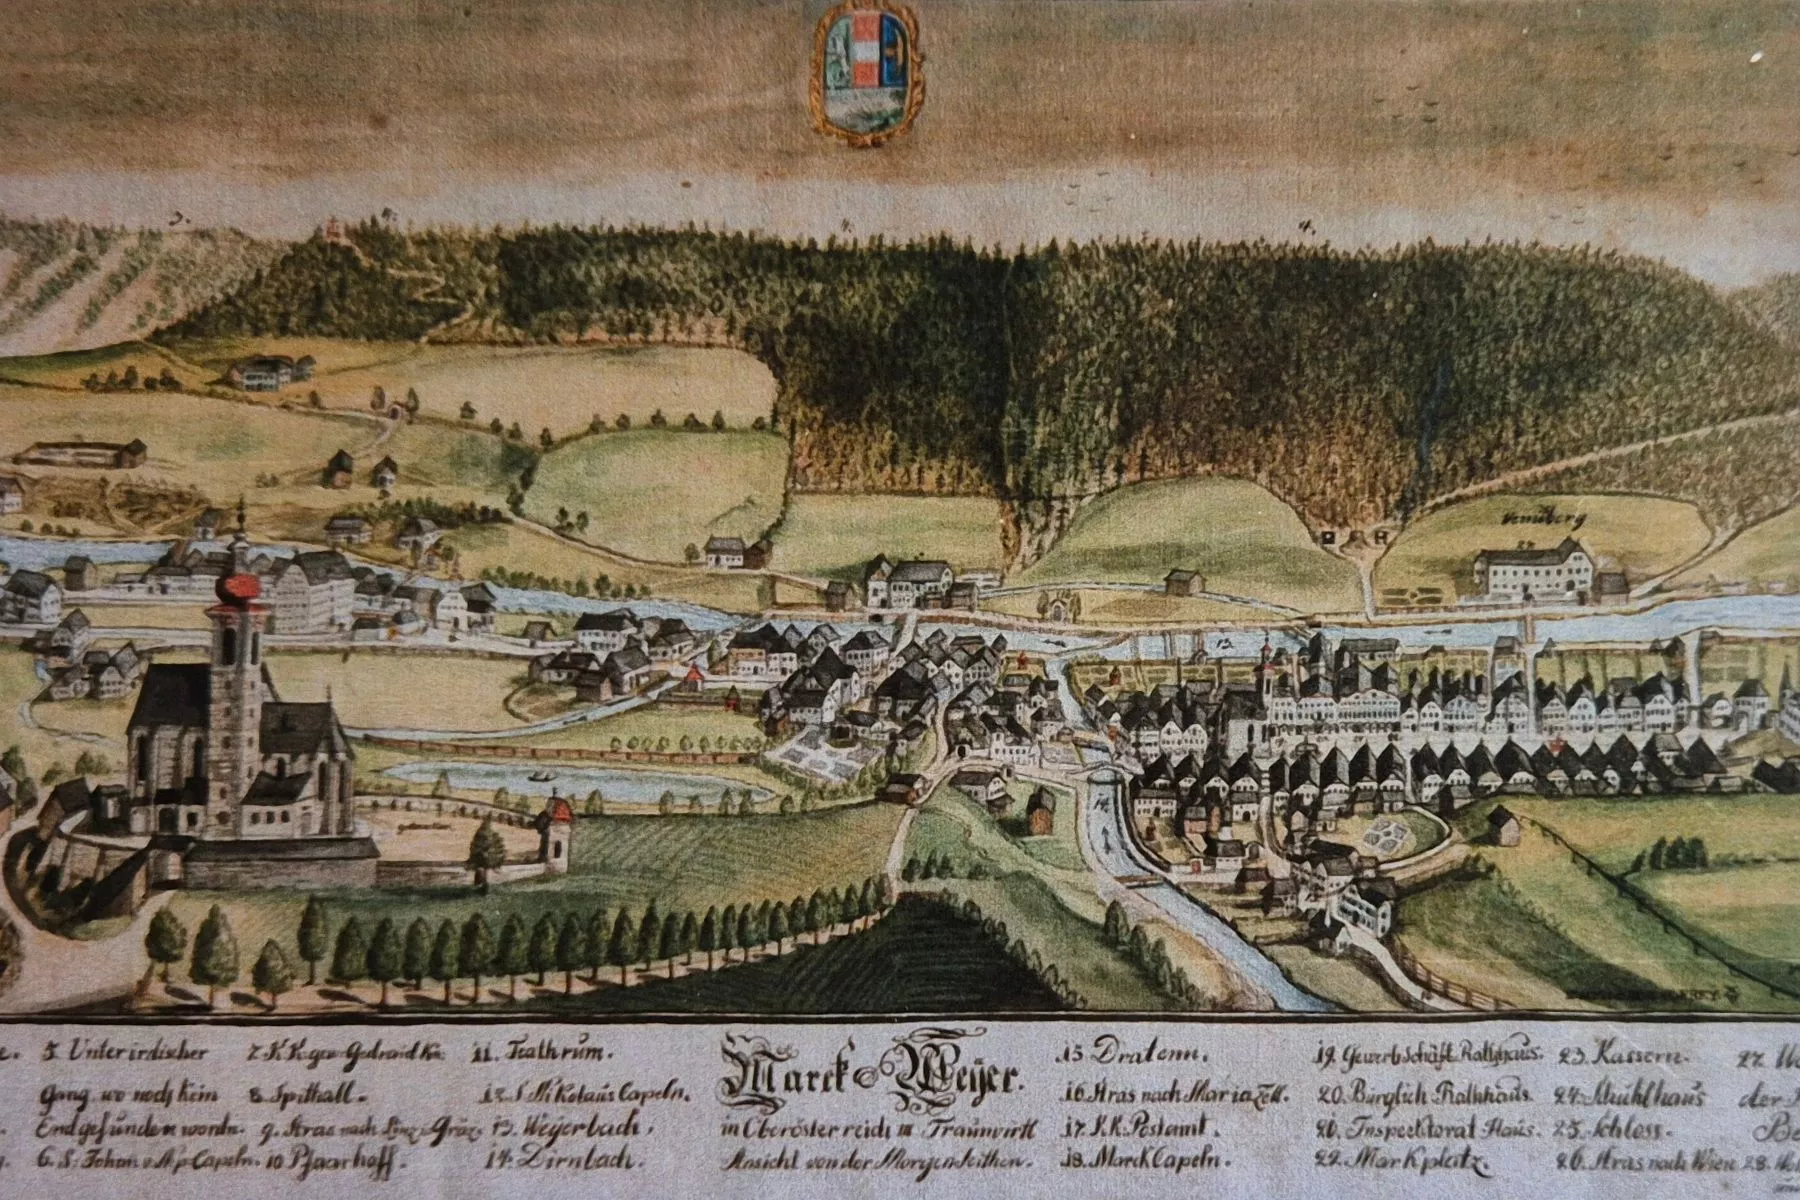 3.
4.
4.
4.
Venüberg
27
13.
14.
5. Unterirdischer
Gang, wo noch kein
End gefunden wordn.
6. S. Johan v Ap Capeln.
8. Spithall.
9. Stras nach Linz, Gräz.
10 Pfaarhoff.
11. Teathrum.
12. S. Nikolaus Capeln.
13. Weyerbach.
14. Dirnbach.
Marck Weyer.
in Oberösterreich Traunvirtl
Ansicht von der Morgen seithen.
15 Dratenn.
16. Stras nach Maria Zell.
17. K.K. Postamt.
18. Marck Capeln.
19. Gewerbschäft Rathhaus.
20. Bürglich Rathhaus.
21. Inspecktorat Haus.
22. Markplatz.
23. Kassern.
24. Mühlhaus
25. Schloss.
26. Stras nach Wien
27.
der
28.